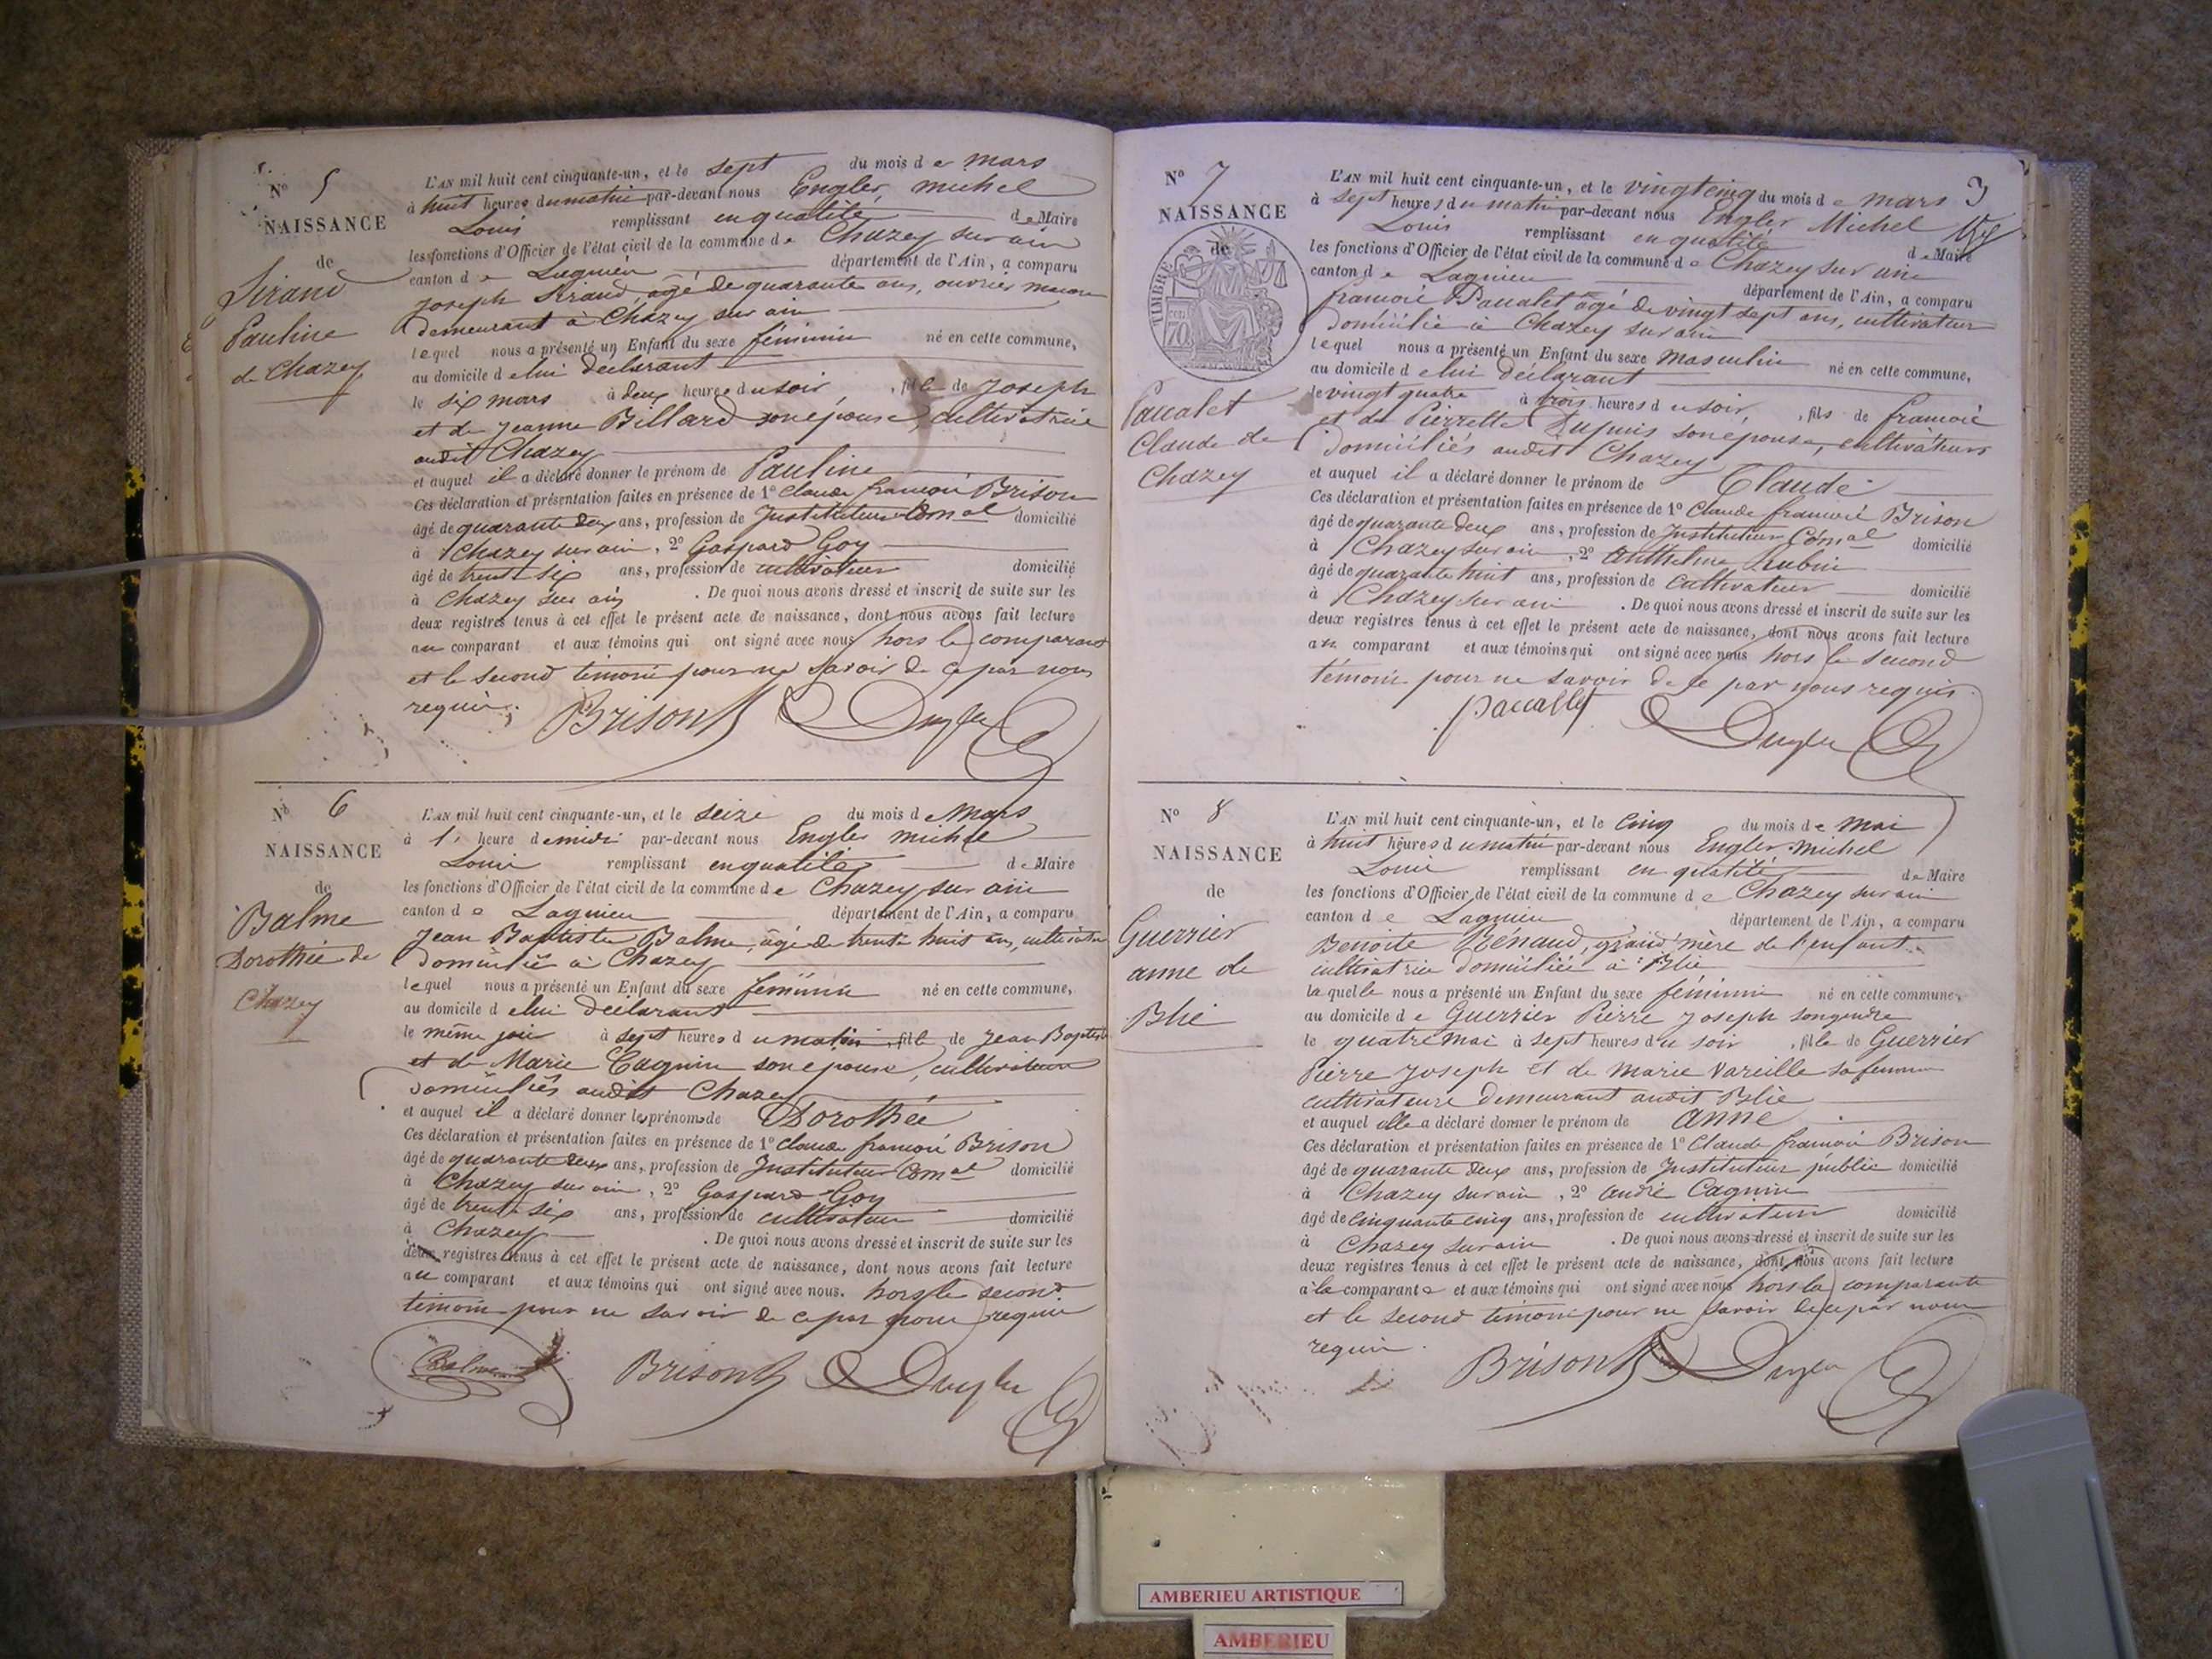 N° 5
NAISSANCE
de
Sirand
Pauline
de Chazey
L'AN mil huit cent cinquante-un, et le sept du mois de mars
à huit heures du matin par-devant nous Engler, michel
Louis remplissant en qualité de Maire
les fonctions d'Officier de l'état civil de la commune de Chazey sur ain
canton de Lagnieu département de l'Ain, a comparu
Joseph Sirand, agé de quarante ans, ouvrier macon
demeurant à Chazey sur ain
lequel nous a présenté un Enfant du sexe féminin né en cette commune,
au domicile de lui déclarant
le six mars à deux heures du soir, fille de Joseph
et de Jeanne Billard son épouse, cultivatrice
audit Chazey
et auquel il a déclaré donner le prénom de Pauline
Ces déclaration et présentation faites en présence de 1° Claude françois Brison
âgé de quarante deux ans, profession de Instituteur Comal domicilié
à Chazey sur ain, 2° Gaspard Goy
âgé de trente six ans, profession de cultivateur domicilié
à Chazey sur ain . De quoi nous avons dressé et inscrit de suite sur les
deux registres tenus à cet effet le présent acte de naissance, dont nous avons fait lecture
au comparant et aux témoins qui ont signé avec nous hors le comparant
et le second témoin pour ne savoir de ce par nous
requis.
Brison Engler
N° 6
NAISSANCE
de
Balme
Dorothée de
Chazey
L'AN mil huit cent cinquante-un, et le seize du mois de Mars
à 1 heure de midi par-devant nous Engler michel
Louis remplissant en qualité de Maire
les fonctions d'Officier de l'état civil de la commune de Chazey sur ain
canton de Lagnieu département de l'Ain, a comparu
Jean Baptiste Balme, agé de trente huit ans, cultivateur
domicilié à Chazey
lequel nous a présenté un Enfant du sexe féminin né en cette commune,
au domicile de lui déclarant
le même jour à sept heures du matin, fille de Jean Baptiste
et de Marie Cagnin son épouse, cultivateurs
domiciliés audit Chazey
et auquel il a déclaré donner le prénom de Dorothée
Ces déclaration et présentation faites en présence de 1° Claude françois Brison
âgé de quarante deux ans, profession de Instituteur Comal domicilié
à Chazey sur ain, 2° Gaspard Goy
âgé de trente six ans, profession de cultivateur domicilié
à Chazey . De quoi nous avons dressé et inscrit de suite sur les
deux registres tenus à cet effet le présent acte de naissance, dont nous avons fait lecture
au comparant et aux témoins qui ont signé avec nous. hors le second
témoin pour ne savoir de ce par nous requis
Balme Brison Engler
3
N° 7
NAISSANCE
de
TIMBRE
70
Paccalet
Claude de
Chazey
L'AN mil huit cent cinquante-un, et le vingt cinq du mois de mars
à sept heures du matin par-devant nous Engler Michel
Louis remplissant en qualité de Maire
les fonctions d'Officier de l'état civil de la commune de Chazey sur ain
canton de Lagnieu département de l'Ain, a comparu
françois Paccalet agé de vingt sept ans, cultivateur
domicilié à Chazey sur ain
lequel nous a présenté un Enfant du sexe Masculin né en cette commune,
au domicile de lui déclarant
le vingt quatre à trois heures du soir, fils de françois
et de Pierrette Dupuis son épouse, cultivateurs
domiciliés audit Chazey
et auquel il a déclaré donner le prénom de Claude
Ces déclaration et présentation faites en présence de 1° Claude françois Brison
âgé de quarante deux ans, profession de Instituteur Comal domicilié
à Chazey sur ain, 2° anthelme Lubin
âgé de quarante huit ans, profession de Cultivateur domicilié
à Chazey sur ain . De quoi nous avons dressé et inscrit de suite sur les
deux registres tenus à cet effet le présent acte de naissance, dont nous avons fait lecture
au comparant et aux témoins qui ont signé avec nous hors le second
témoin pour ne savoir de ce par nous requis.
paccallet Engler
N° 8
NAISSANCE
de
Guerrier
anne de
Blie
L'AN mil huit cent cinquante-un, et le cinq du mois de Mai
à huit heures du matin par-devant nous Engler Michel
Louis remplissant en qualité de Maire
les fonctions d'Officier de l'état civil de la commune de Chazey sur ain
canton de Lagnieu département de l'Ain, a comparu
Benoite Rénaud, grand'mère de l'enfant
cultivatrice domiciliée à Blie
laquelle nous a présenté un Enfant du sexe féminin né en cette commune,
au domicile de Guerrier Pierre Joseph son gendre
le quatre mai à sept heures du soir, fille de Guerrier
Pierre Joseph et de Marie Vareille sa femme
cultivateurs demeurant audit Blie
et auquel elle a déclaré donner le prénom de anne
Ces déclaration et présentation faites en présence de 1° Claude françois Brison
âgé de quarante deux ans, profession de Instituteur public domicilié
à Chazey sur ain, 2° andré Cagnin
âgé de cinquante cinq ans, profession de cultivateur domicilié
à Chazey sur ain . De quoi nous avons dressé et inscrit de suite sur les
deux registres tenus à cet effet le présent acte de naissance, dont nous avons fait lecture
à la comparante et aux témoins qui ont signé avec nous hors la comparante
et le second témoin pour ne savoir de ce par nous
requis.
Brison Engler
AMBERIEU ARTISTIQUE
AMBERIEU